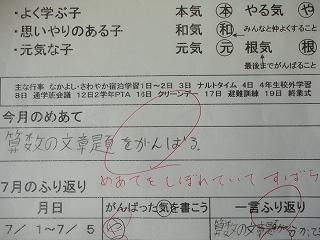 ・よく学ぶ子 本気 本 やる気
・思いやりのある子 和気 和 みんなと仲よくすること
・元気な子 元気 元 根気 根
最後までがんばること
主な行事 なかよし・さわやか宿泊学習1日~2日 3日 ナルトタイム 4日 4年生校外学習
8日 通学班会議 12日2学年PTA 16日 クリーンデー 17日 避難訓練 19日 終業式
今月のめあて
算数の文章題をがんばる。
めあてをしぼれていてすばら
7月のふり返り
月日 がんばった気を書こう 一言ふり返り
7/1~7/5 算数の文章題